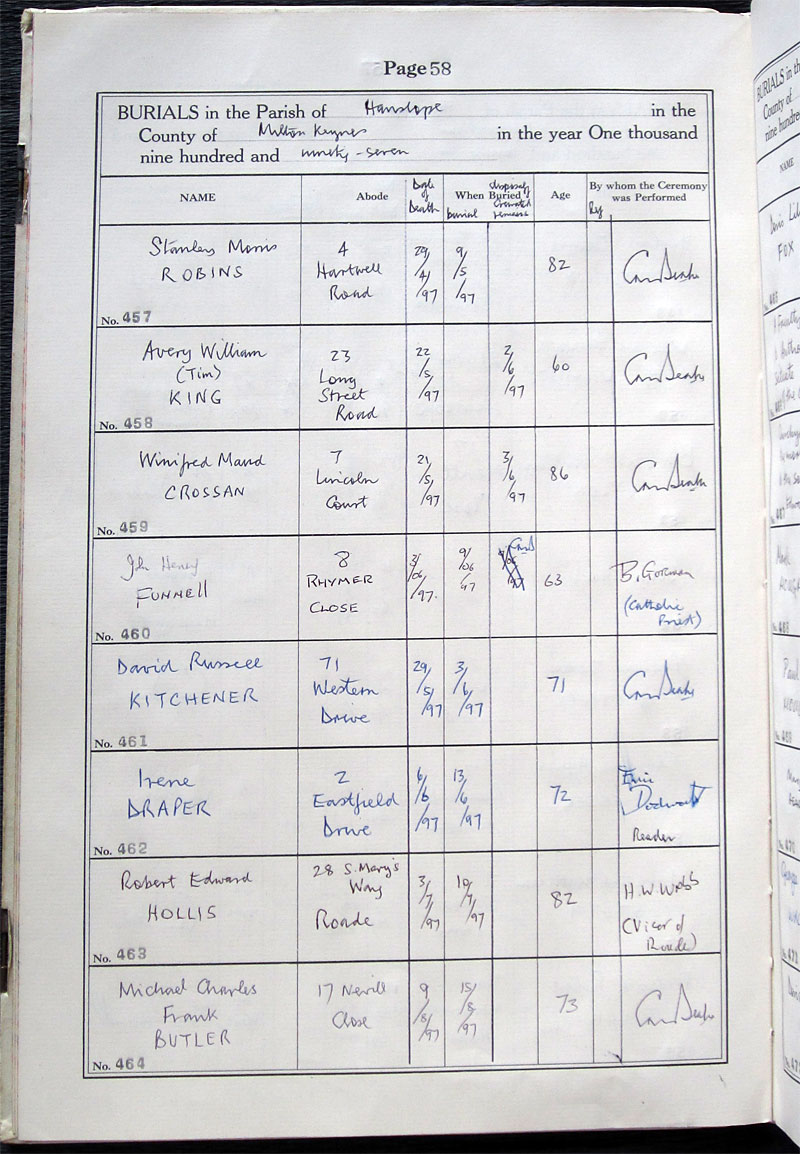 Page 58
BURIALS in the Parish of Hanslope in the
County of Milton Keynes in the year One thousand
nine hundred and ninety-seven
NAME
Abode
Date of Death
When Buried
burial
disposal of Cremated remains
Age
By whom the Ceremony was Performed
Stanley Morris
ROBINS
No. 457
4
Hartwell
Road
29/4/97
9/5/97
82
Avery William
(Tim)
KING
No. 458
23
Long
Street
Road
22/5/97
2/6/97
60
Winifred Maud
CROSSAN
No. 459
7
Lincoln
Court
21/5/97
3/6/97
86
John Henry
FUNNEll
No. 460
8
RHYMER
CLOSE
3/06/97.
9/06/97
63
B. Gorman
(Catholic
Priest)
David Russell
KITCHENER
No. 461
71
Western
Drive
29/5/97
3/6/97
71
Irene
DRAPER
No. 462
2
Eastfield
Drive
6/6/97
13/6/97
72
Reader
Robert Edward
HOLLIS
No. 463
28 S. Mary's
Way
Roade
3/7/97
10/7/97
82
H.W. Webb
(Vicar of
Roade)
Michael Charles
Frank
BUTLER
No. 464
17 Nevill
Close
9/8/97
15/8/97
73
BURIALS in th
County of
nine hundred
NAME
FOX